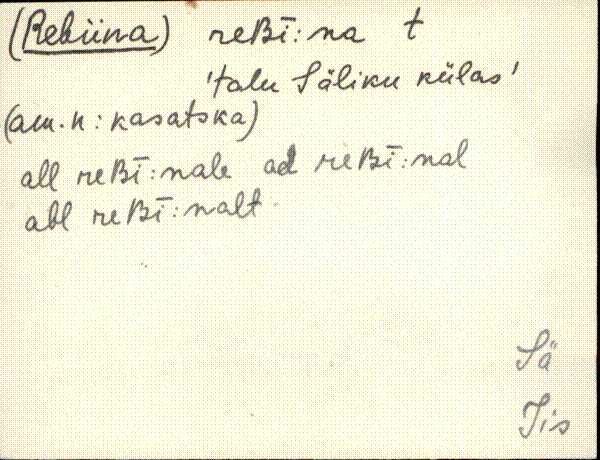 (Rebiina) reBī:na t
'talu Säliku külas'
(am.n: kasatska)
all reBī:nale ad reBī:nal
abl reBī:nalt
Sä
Jis